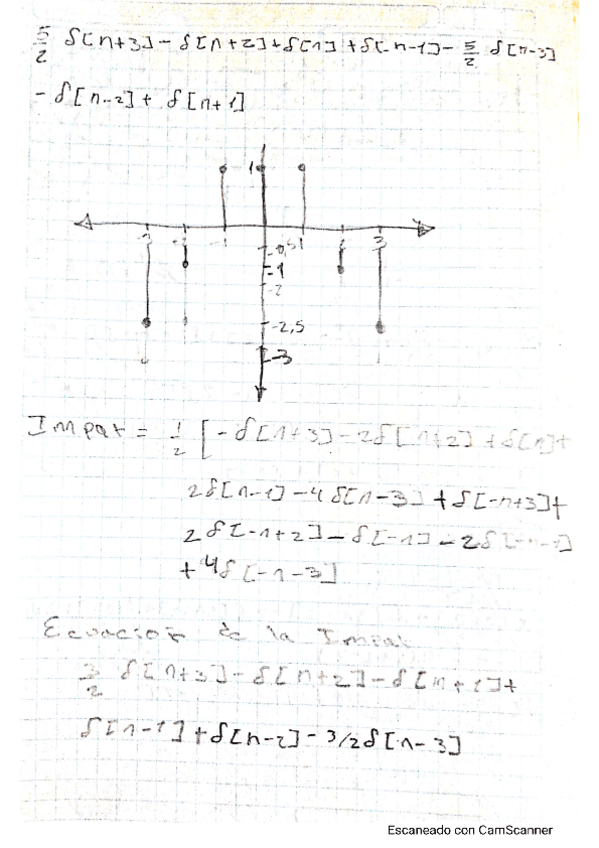 5/2 δ[n+3] - δ[n+2] + δ[n] + δ[-n-1] - 5/2 δ[n-3]
- δ[n-2] + δ[n+1]
1
-3 -2 -1 1 2 3
-0,5
-1
-2
-2,5
-3
Impar = 1/2 [-δ[n+3] - 2δ[n+2] + δ[n] +
2δ[n-1] - 4δ[n-3] + δ[-n+3] +
2δ[-n+2] - δ[-n] - 2δ[-n-1]
+ 4δ[-n-3]
Ecuación de la Impar
3/2 δ[n+3] - δ[n+2] - δ[n+1] +
δ[n-1] + δ[n-2] - 3/2 δ[n-3]
Escaneado con CamScanner